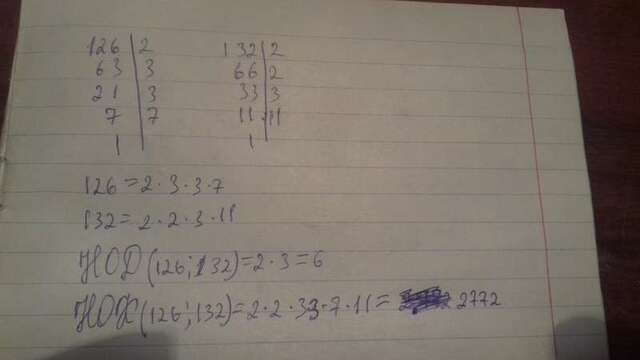 126 | 2 132 | 2
63 | 3 66 | 2
21 | 3 33 | 3
7 | 7 11 | 11
1 | 1 |
126 = 2 · 3 · 3 · 7
132 = 2 · 2 · 3 · 11
НОД (126; 132) = 2 · 3 = 6
НОК (126; 132) = 2 · 2 · 33 · 7 · 11 = 2772